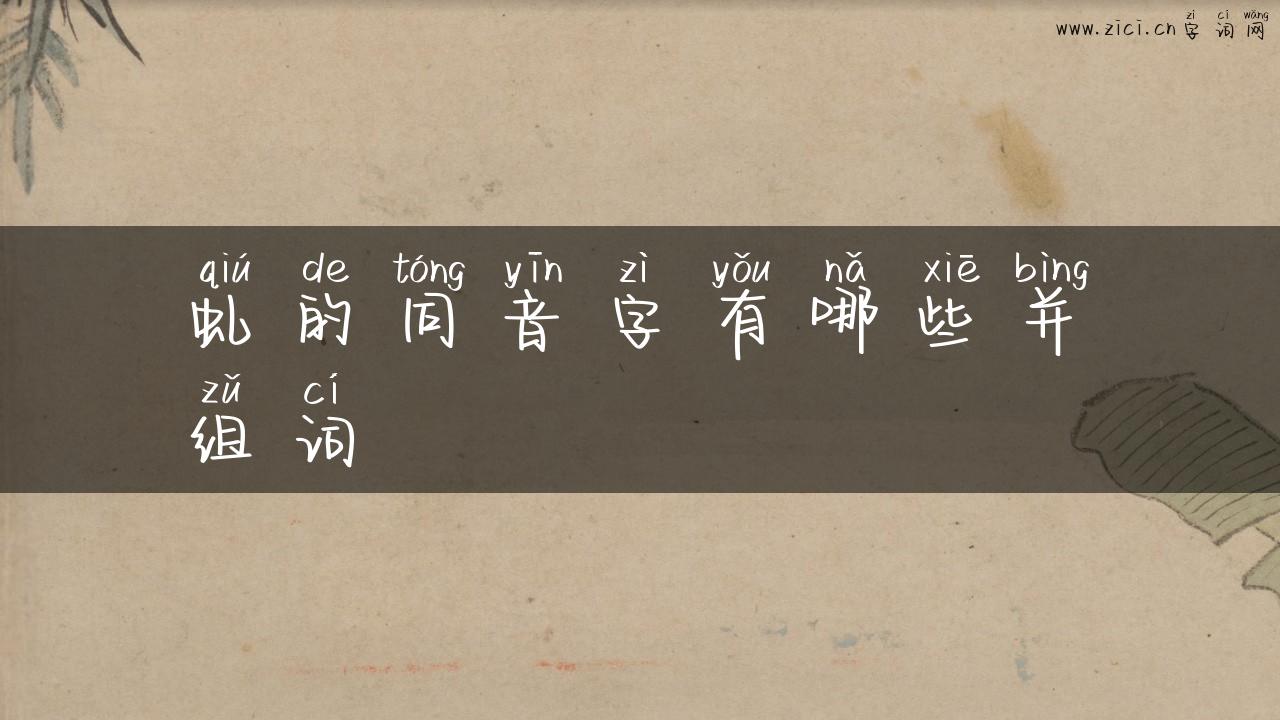 zì cí wǎng
www.zici.cn 字词网
qiú de tóng yīn zì yǒu nǎ xiē bìng
虬的同音字有哪些并
zǔ cí
组词